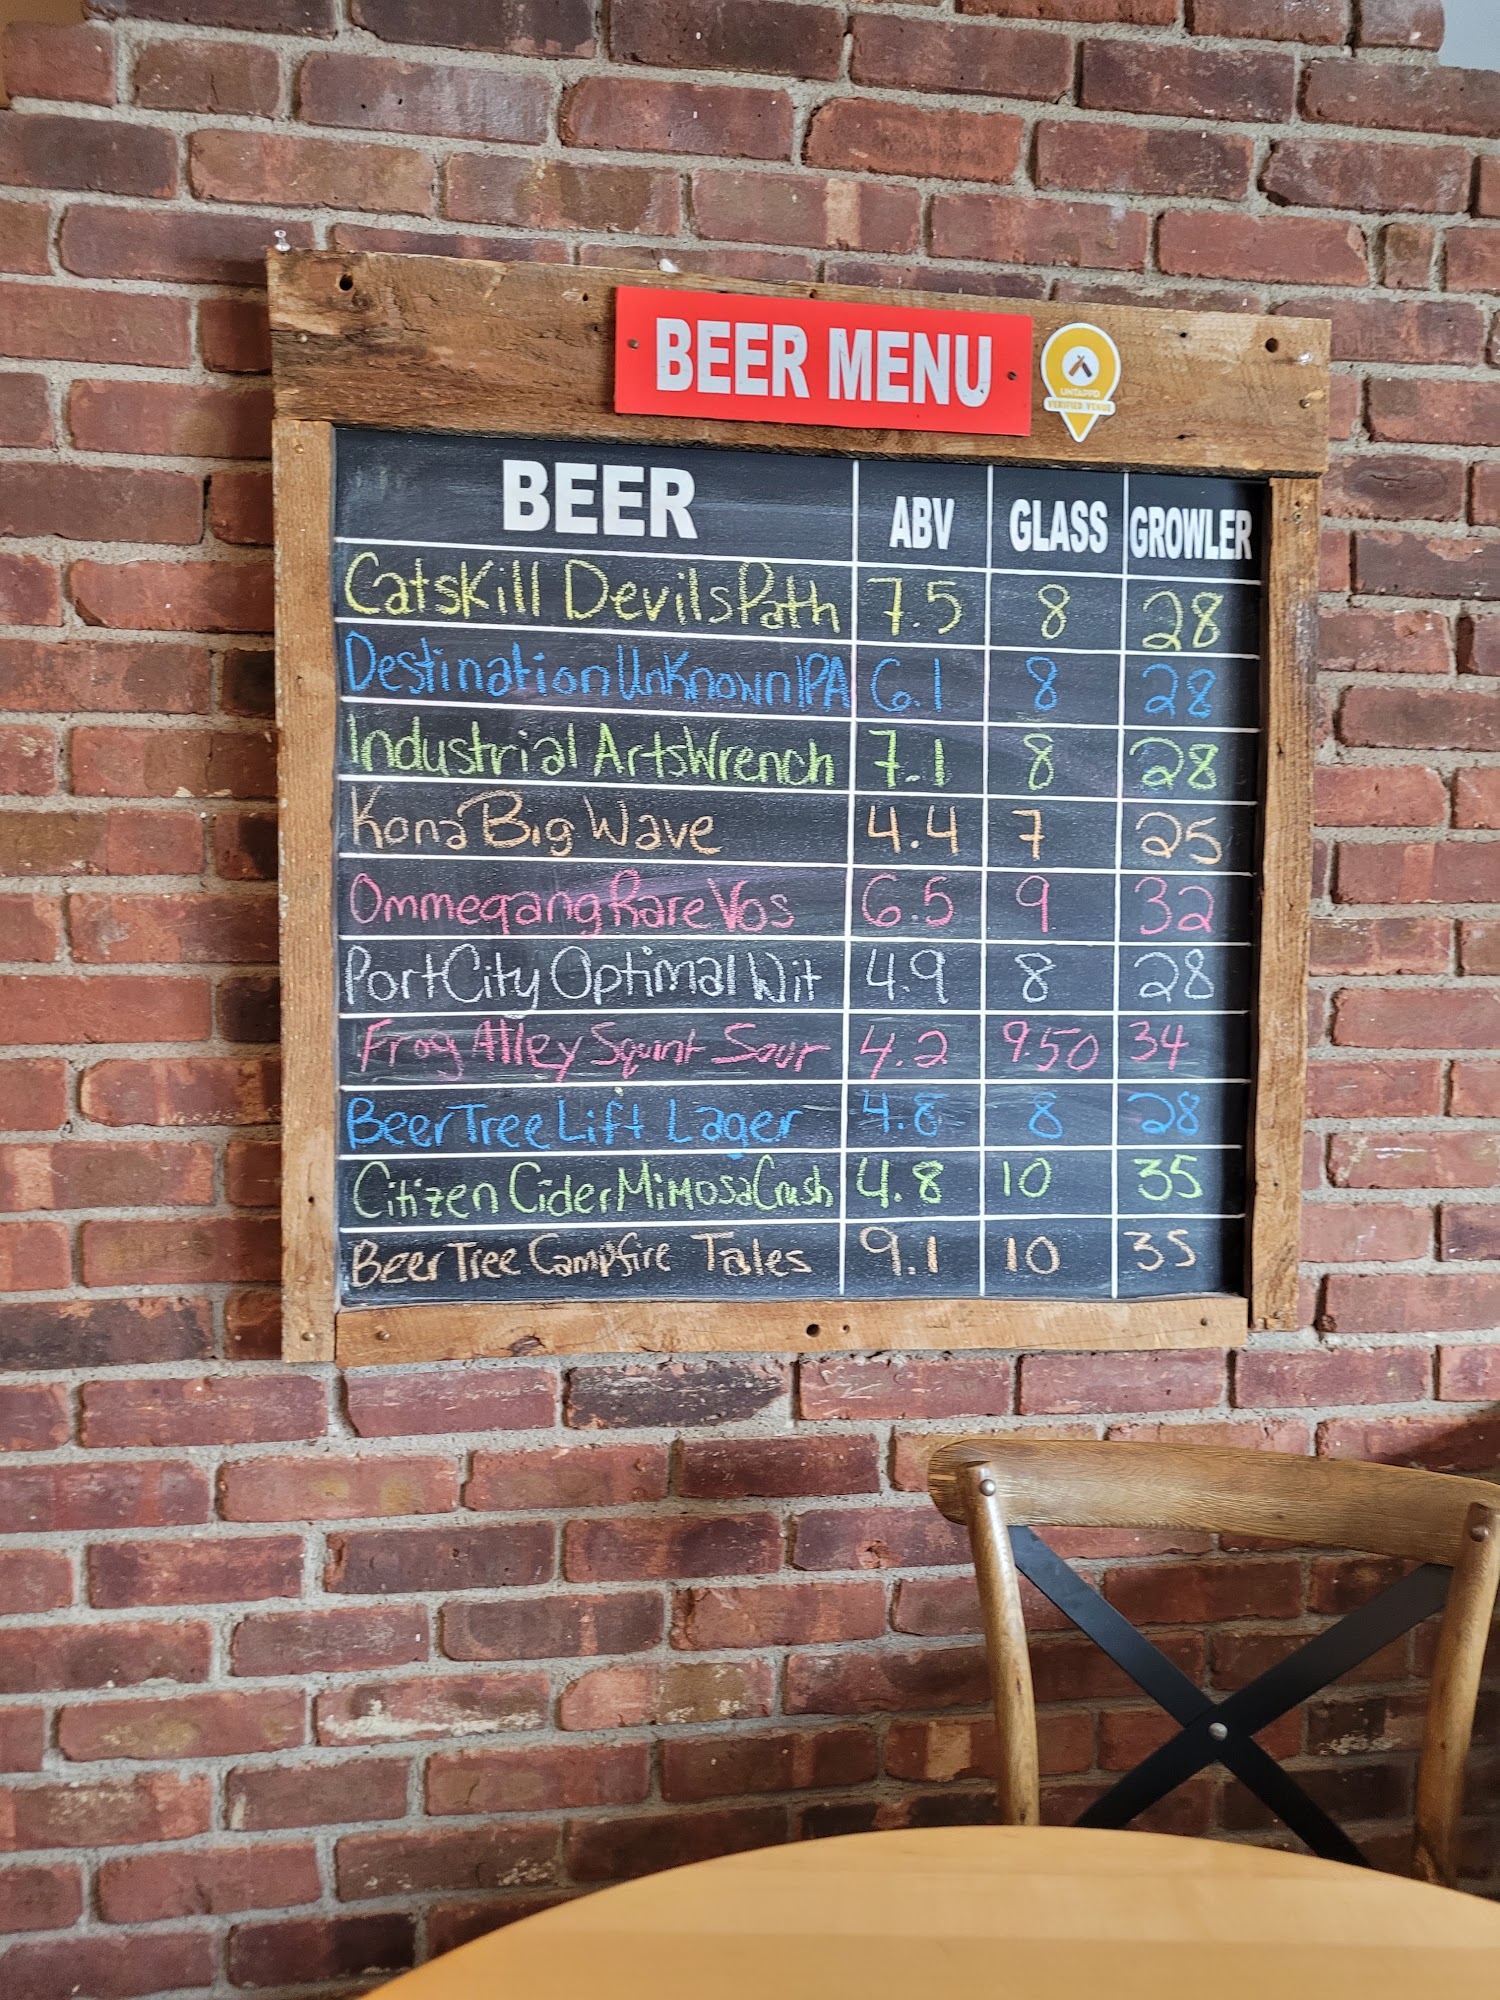 BEER MENU
UNTAPPD
VERIFIED VENUE
BEER ABV GLASS GROWLER
Catskill Devils Path 7.5 8 28
Destination Unknown IPA 6.1 8 28
Industrial Arts Wrench 7.1 8 28
Kona Big Wave 4.4 7 25
Ommegang Rare Vos 6.5 9 32
Port City Optimal Wit 4.9 8 28
Frog Alley Squint Sour 4.2 9.50 34
Beer Tree Lift Lager 4.8 8 28
Citizen Cider Mimosa Crush 4.8 10 35
Beer Tree Campfire Tales 9.1 10 35